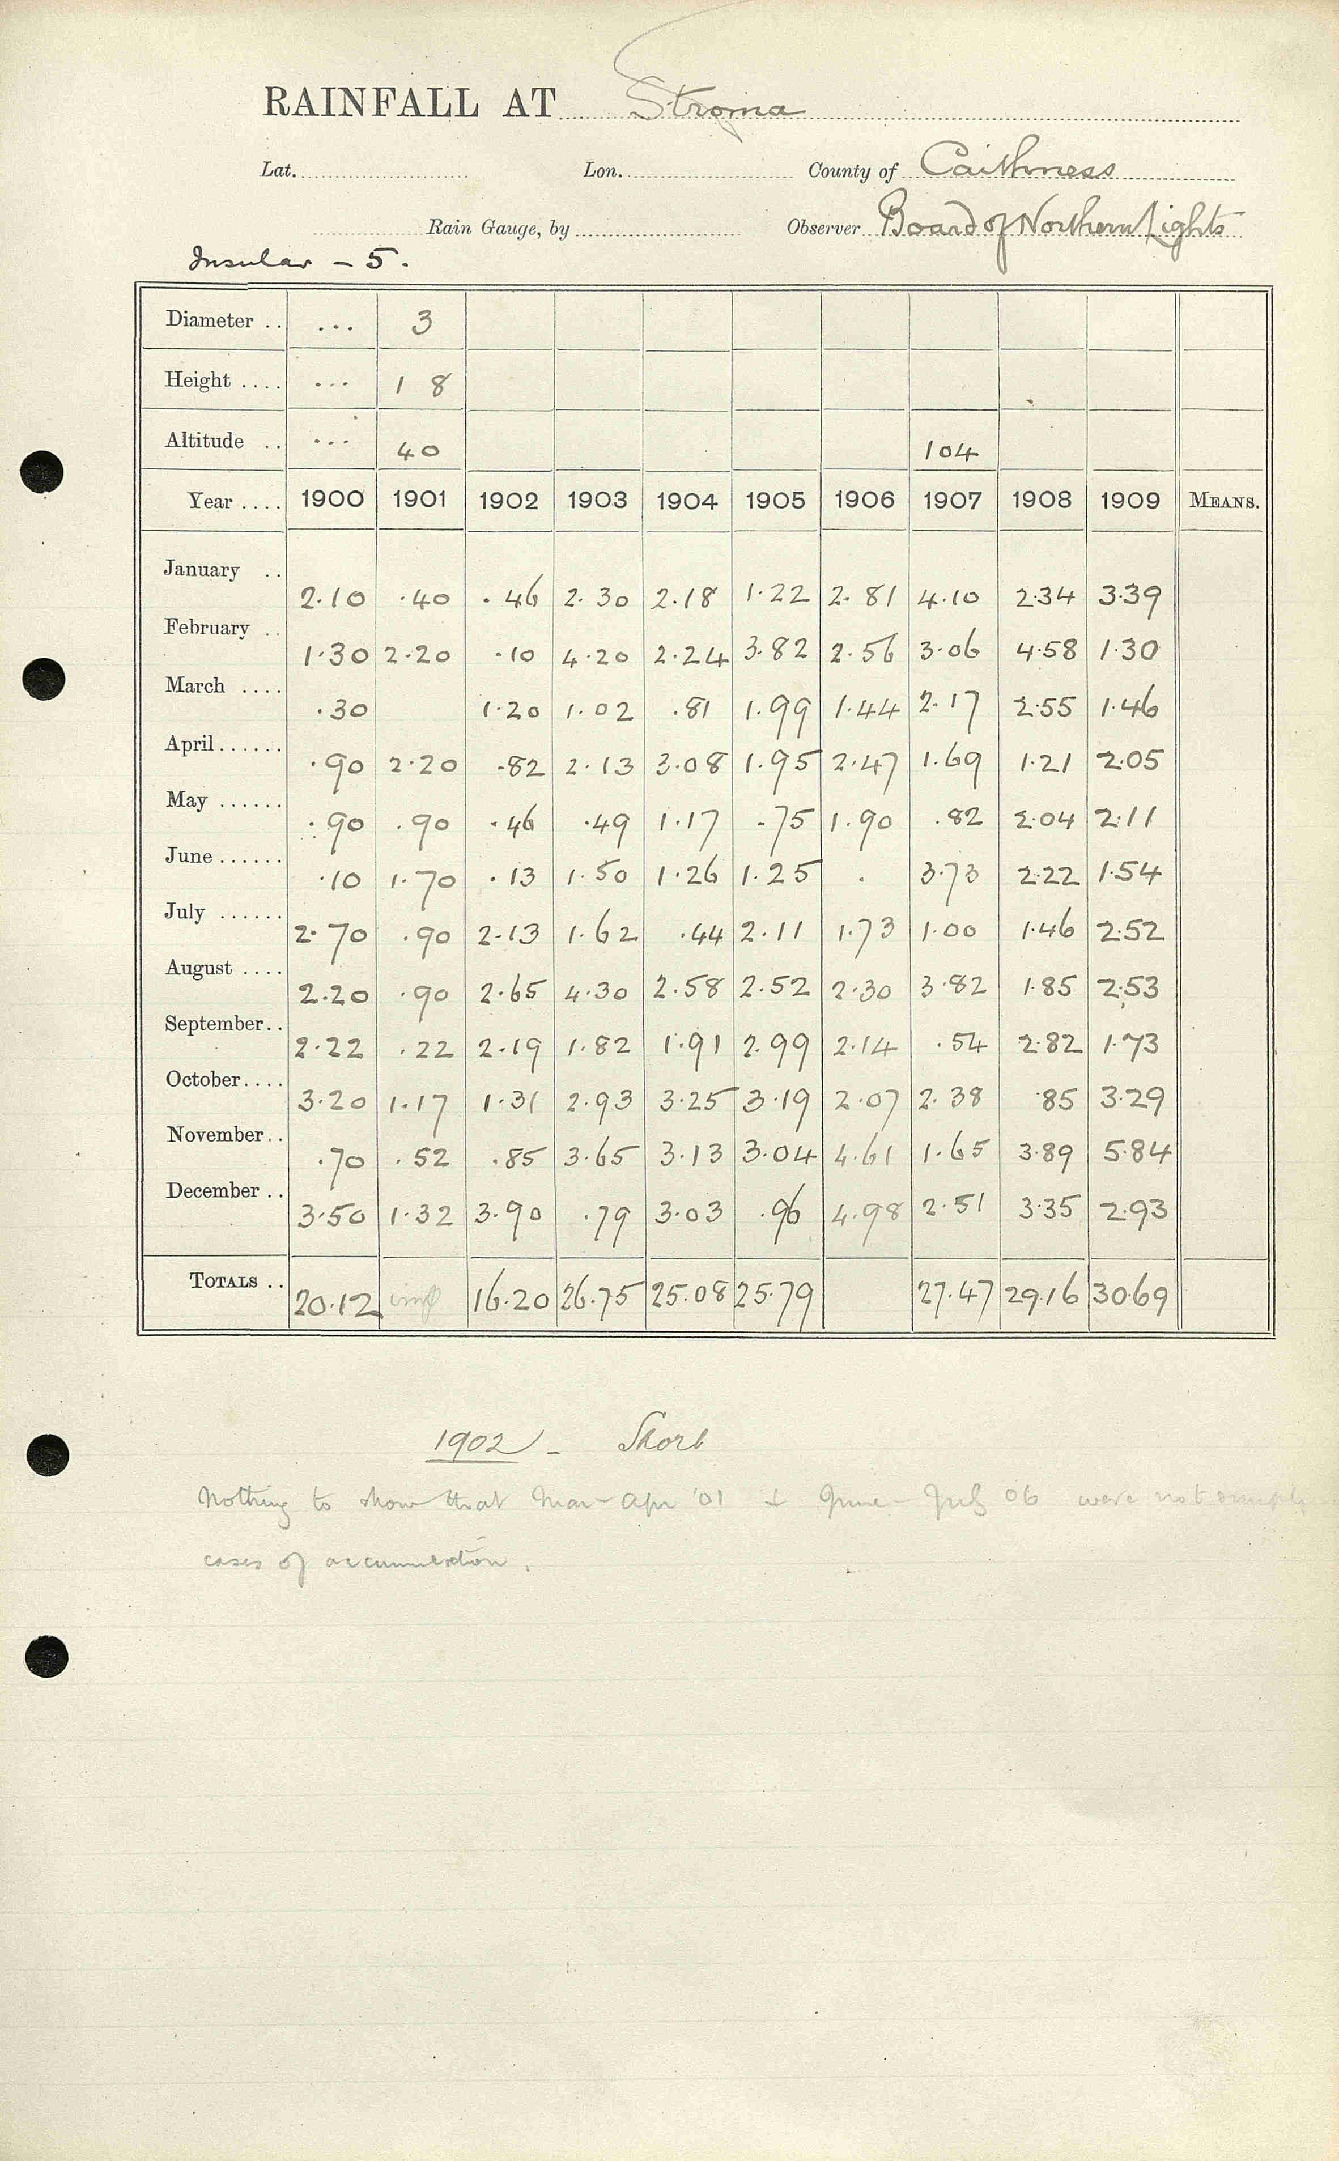 RAINFALL AT Stroma
Lat. Lon. County of Caithness
Rain Gauge, by Observer Board of Northern Lights
Insular - 5.
Diameter .. ... 3
Height .... ... 1 8
Altitude .. ... 40 104
Year .... 1900 1901 1902 1903 1904 1905 1906 1907 1908 1909 MEANS.
January .. 2.10 .40 .46 2.30 2.18 1.22 2.81 4.10 2.34 3.39
February .. 1.30 2.20 .10 4.20 2.24 3.82 2.56 3.06 4.58 1.30
March .... .30 1.20 1.02 .81 1.99 1.44 2.17 2.55 1.46
April ...... .90 2.20 .82 2.13 3.08 1.95 2.47 1.69 1.21 2.05
May ...... .90 .90 .46 .49 1.17 .75 1.90 .82 2.04 2.11
June ...... .10 1.70 .13 1.50 1.26 1.25 . 3.73 2.22 1.54
July ...... 2.70 .90 2.13 1.62 .44 2.11 1.73 1.00 1.46 2.52
August .... 2.20 .90 2.65 4.30 2.58 2.52 2.30 3.82 1.85 2.53
September.. 2.22 .22 2.19 1.82 1.91 2.99 2.14 .54 2.82 1.73
October.... 3.20 1.17 1.31 2.93 3.25 3.19 2.07 2.38 .85 3.29
November.. .70 .52 .85 3.65 3.13 3.04 4.61 1.65 3.89 5.84
December .. 3.50 1.32 3.90 .79 3.03 .96 4.98 2.51 3.35 2.93
TOTALS .. 20.12 imp 16.20 26.75 25.08 25.79 27.47 29.16 30.69
1902 - Short
Nothing to show that Mar - Apr '01 & June - July 06 were not simply
cases of accumulation.